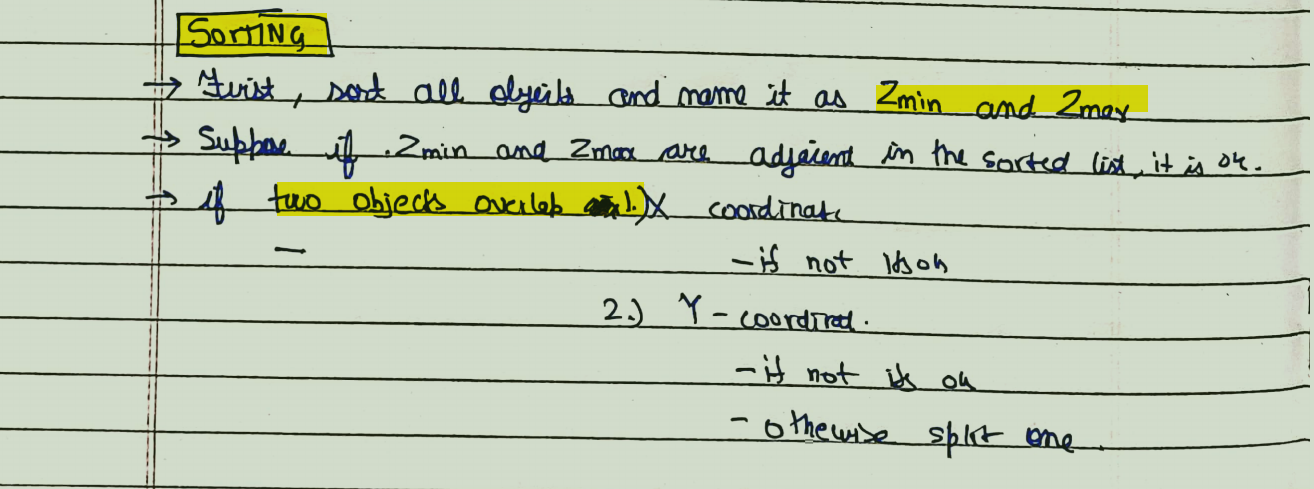 SORTING
→ First, sort all objects and name it as Zmin and Zmax
→ Suppose if Zmin and Zmax are adjacent in the sorted list, it is ok.
→ if two objects overlap 1.) X coordinate
— - if not its ok
2.) Y - coordinat.
- if not its ok
- otherwise split one.